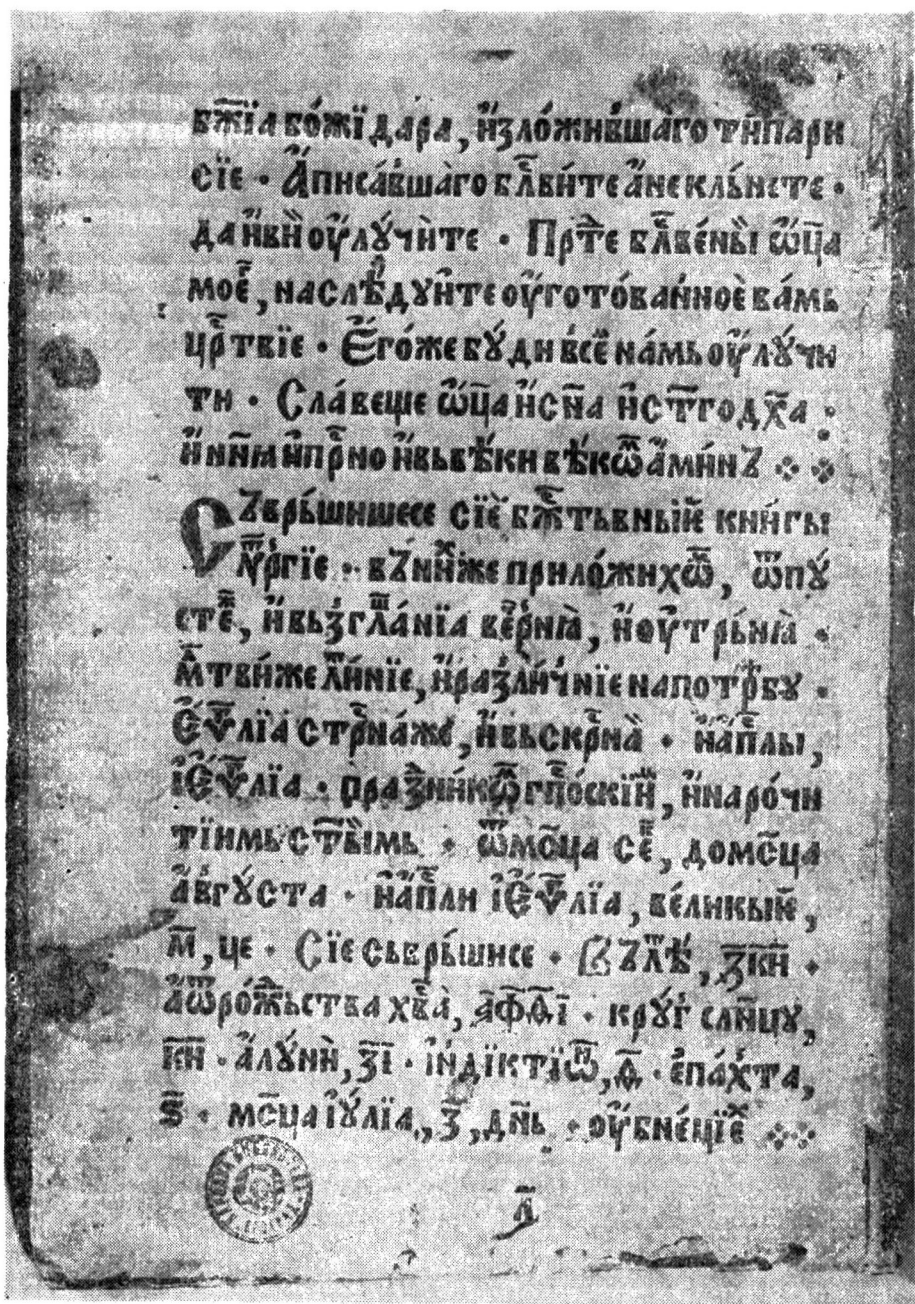 бж҃їа бо́жї дара, и҆зло́жи́вшаго ти́пари
сїе · А҆писа́вшаго бл҃ви́те а҆не кль́нсте ·
да и҆вѝ оу҆лꙋ́чѝте · Прїд҃те бл҃ве́нѝ ѿц҃а
моеⷢ҇, наслѣ́дꙋи҆те оу҆гото́ванноѐ ва́мь
црⷭ҇твїе · Е҆го́же бꙋ́ди всѣⷨ на́мь оу҆лꙋ́чи
ти · Сла́веще ѡ҆ц҃а и҆сн҃а и҆ст҃го дх҃а ·
и҆нн҃ꙗ и҆прⷭ҇но и҆вьвѣ́ки вѣ́кѡⷨ а҆ми́нꙁ
Сꙁврь́шишесе сїе́ бжⷭ҇тьвны́йе кни́гы
лѵ́тꙋргїе · вꙁни́хже прило́жихѡⷨ, ѿпꙋ
сте́, и҆вьзгла́нїа ве́рнїа̀, и҆оу҆трь́нїа̀ ·
мл҃тви́же ли́нїе, и҆разли́чнїе напотрⷠ҇бꙋ ·
е҆ѵⷢ҇лїа стрⷭ҇на́жа, и҆вьскрⷭ҇на̀ · и҆а҆пⷭ҇лы,
і҆е҆ѵⷢ҇лїа · пра́зникѡⷨ гпⷭ҇о́скїи҆, и҆наро́чи
тїимь ст҃ы̀мь · ѿмцⷭ҇а сеⷫ҇, домцⷭ҇а
а҆́вгꙋ́ста · и҆а҆пⷭ҇ли і҆е҆ѵⷢ҇лїа, ве́ликый,
м҃, це · Сїе сьврь́шисе · Вꙁлѣⷮ, з҃к҃и ·
а҆ѿрожⷣьства хв҃а̀, а҃ф҃ѳ҃і · крꙋ́гⷭ сл҃нцꙋ,
к҃и · а҆лꙋ́нѝ, з҃і · і҆ндїктїѡⷩ, ѳ҃ · е҆па́хта,
ѕ҃ · мцⷭ҇а і҆ꙋ́лїа, з҃, дн҃ь · оу҆бне́цїеⷯ
л҃